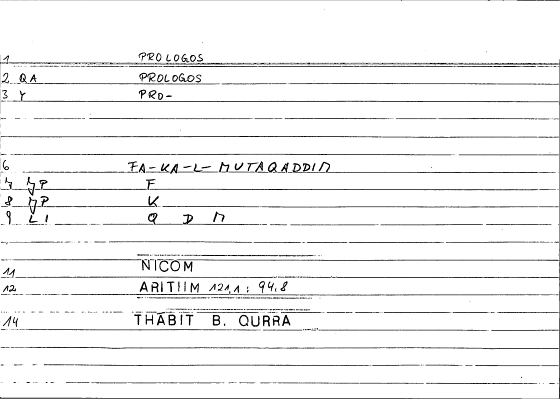 1 PROLOGOS
2 QA PROLOGOS
3 Y PRO-
6 FA-KA-L-MUTAQADDIM
7 F
8 K
9 LI Q D M
11 NICOM
12 ARITIIM 121,1 : 94.8
14 THABIT B. QURRA